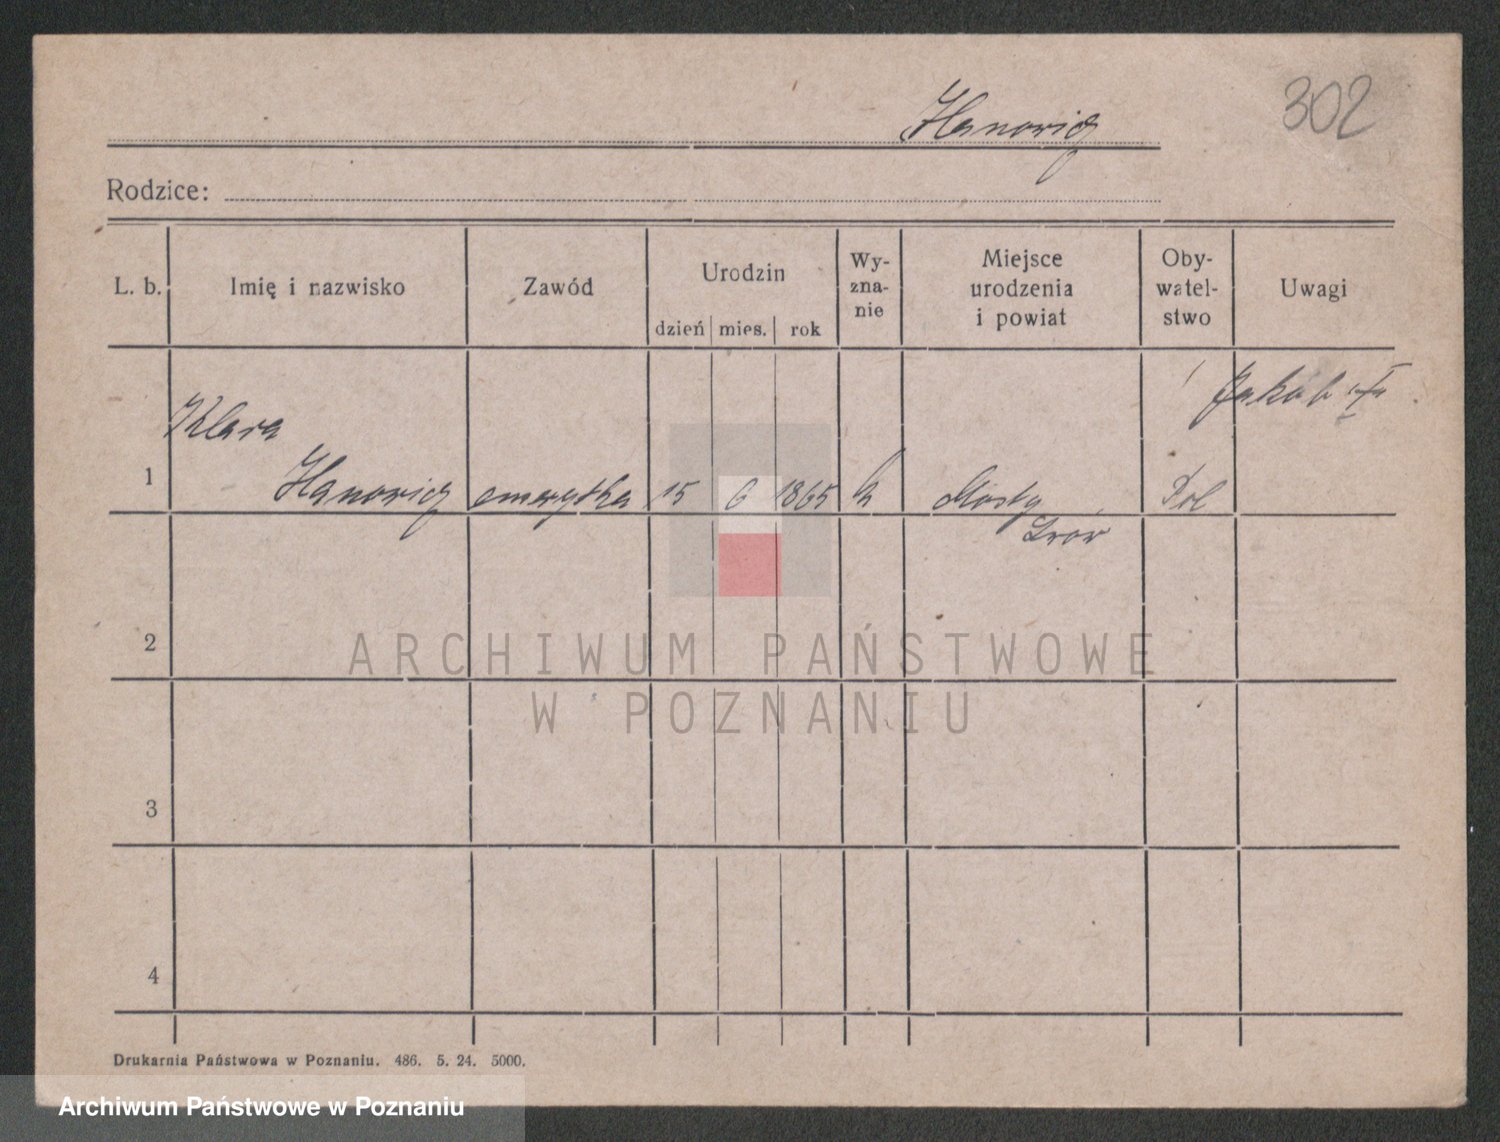 302
Hanowicz
Rodzice:
L. b. Imię i nazwisko Zawód Urodzin dzień mies. rok Wy-zna-nie Miejsce urodzenia i powiat Oby-watel-stwo Uwagi
Jakób
Klara
1 Hanowicz emerytka 15 6 1865 k Mosty Pol
Lwów
2
ARCHIWUM PAŃSTWOWE
W POZNANIU
3
4
Drukarnia Państwowa w Poznaniu. 486. 5. 24. 5000.
Archiwum Państwowe w Poznaniu